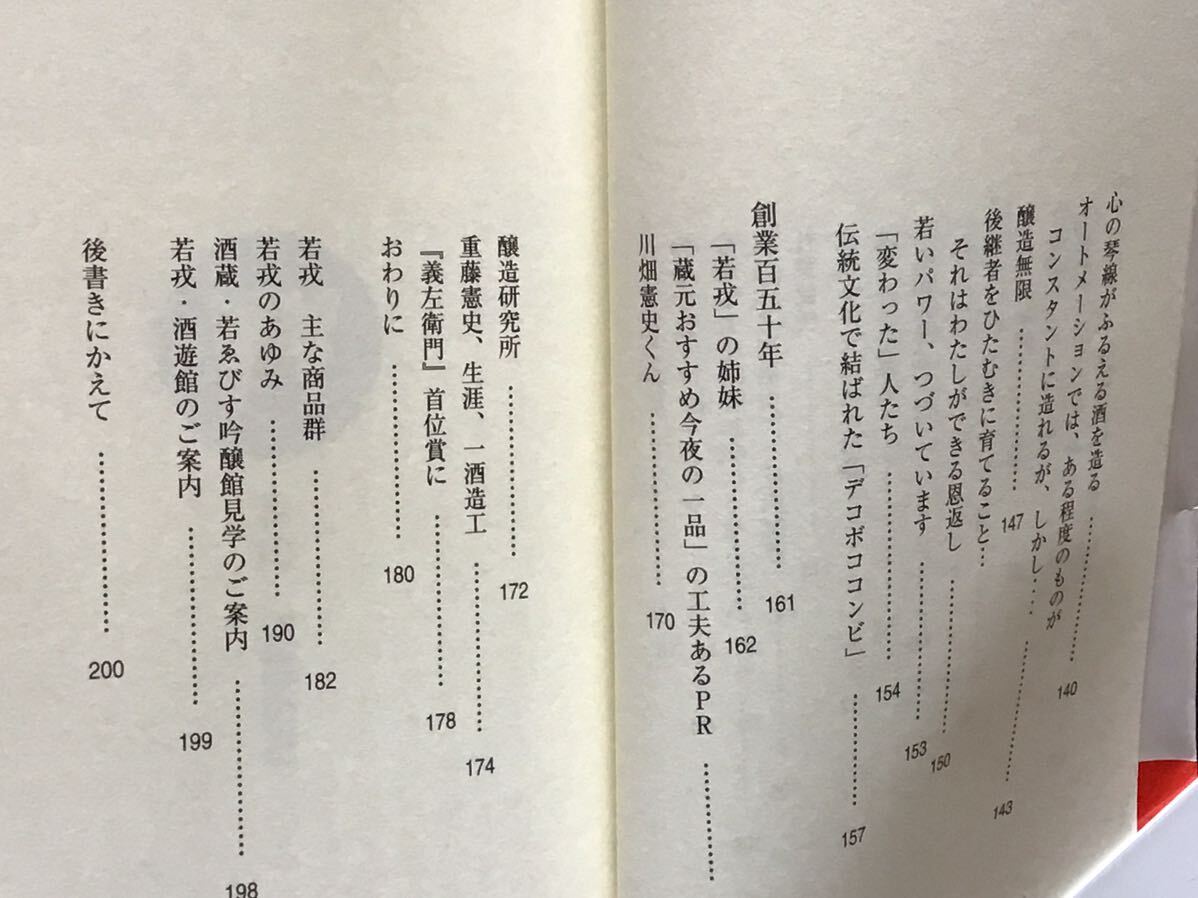 心の琴線がふるえる酒を造る……………140
オートメーションでは、ある程度のものが
コンスタントに造れるが、しかし……………143
醸造無限……………147
後継者をひたむきに育てること…
それはわたしができる恩返し……………150
若いパワー、つづいています……………153
「変わった」人たち……………154
伝統文化で結ばれた「デコボココンビ」……………157
創業百五十年……………161
「若戎」の姉妹……………162
「蔵元おすすめ今夜の一品」の工夫あるPR……………
川畑憲史くん……………170
醸造研究所……………172
重藤憲史、生涯、一酒造工……………174
『義左衛門』首位賞に……………178
おわりに……………180
若戎 主な商品群……………182
若戎のあゆみ……………190
酒蔵・若ゑびす吟醸館見学のご案内……………198
若戎・酒遊館のご案内……………199
後書きにかえて……………200